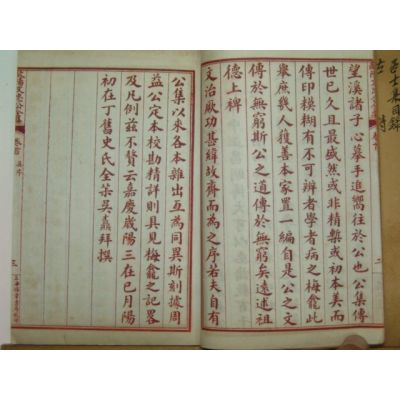 望溪諸子心摹手追嚮往於公也公集傳
世已久且最盛然或非精槧或初本美而
傳印糢糊有不可辨者學者病之梅龕此
舉庶幾人獲善本家置一編自是公之文
傳於無窮斯公之道傳於無窮矣遠述祖
德上裨
文治厥功甚緯故齊而為之序若夫自有
公集以來各本雜出互為同異斯刻據周
益公定本校勘精詳則具見梅龕之記畧
及凡例茲不贅云嘉慶歲陽三在已月陽
初在丁舊史氏全茮吳鼒拜撰
三
二